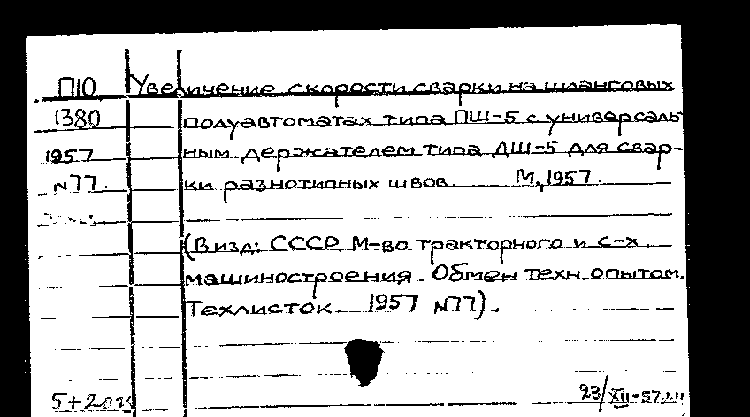 П10 Увеличение скорости сварки на шланговых
1380 полуавтоматах типа ПШ-5 с универсаль-
1957 ным держателем типа ДШ-5 для свар-
N77. ки разнотипных швов. М,1957.
(В изд: СССР М-во тракторного и с-х.
машиностроения. Обмен техн. опытом.
Техлисток 1957 N77).
5+2
23/XII-57